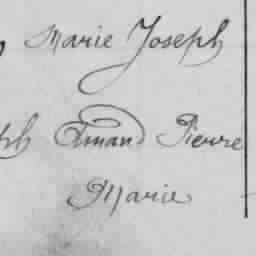 Marie Joseph
ph Amand Pierre
Marie